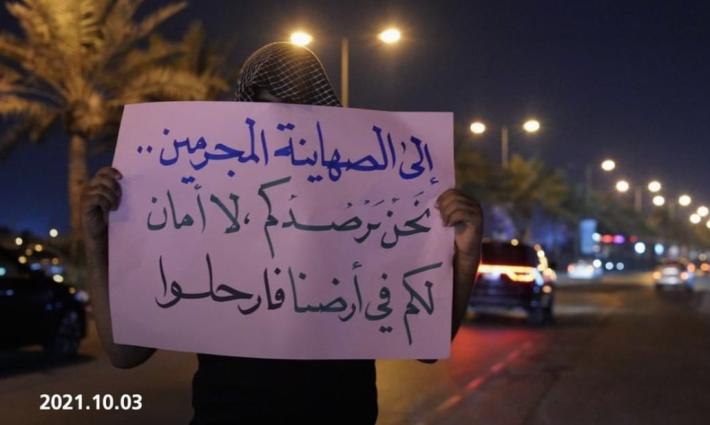 إلى الصهاينة المجرمين..
نحن نرصدكم، لا أمان
لكم في أرضنا فارحلوا
2021.10.03